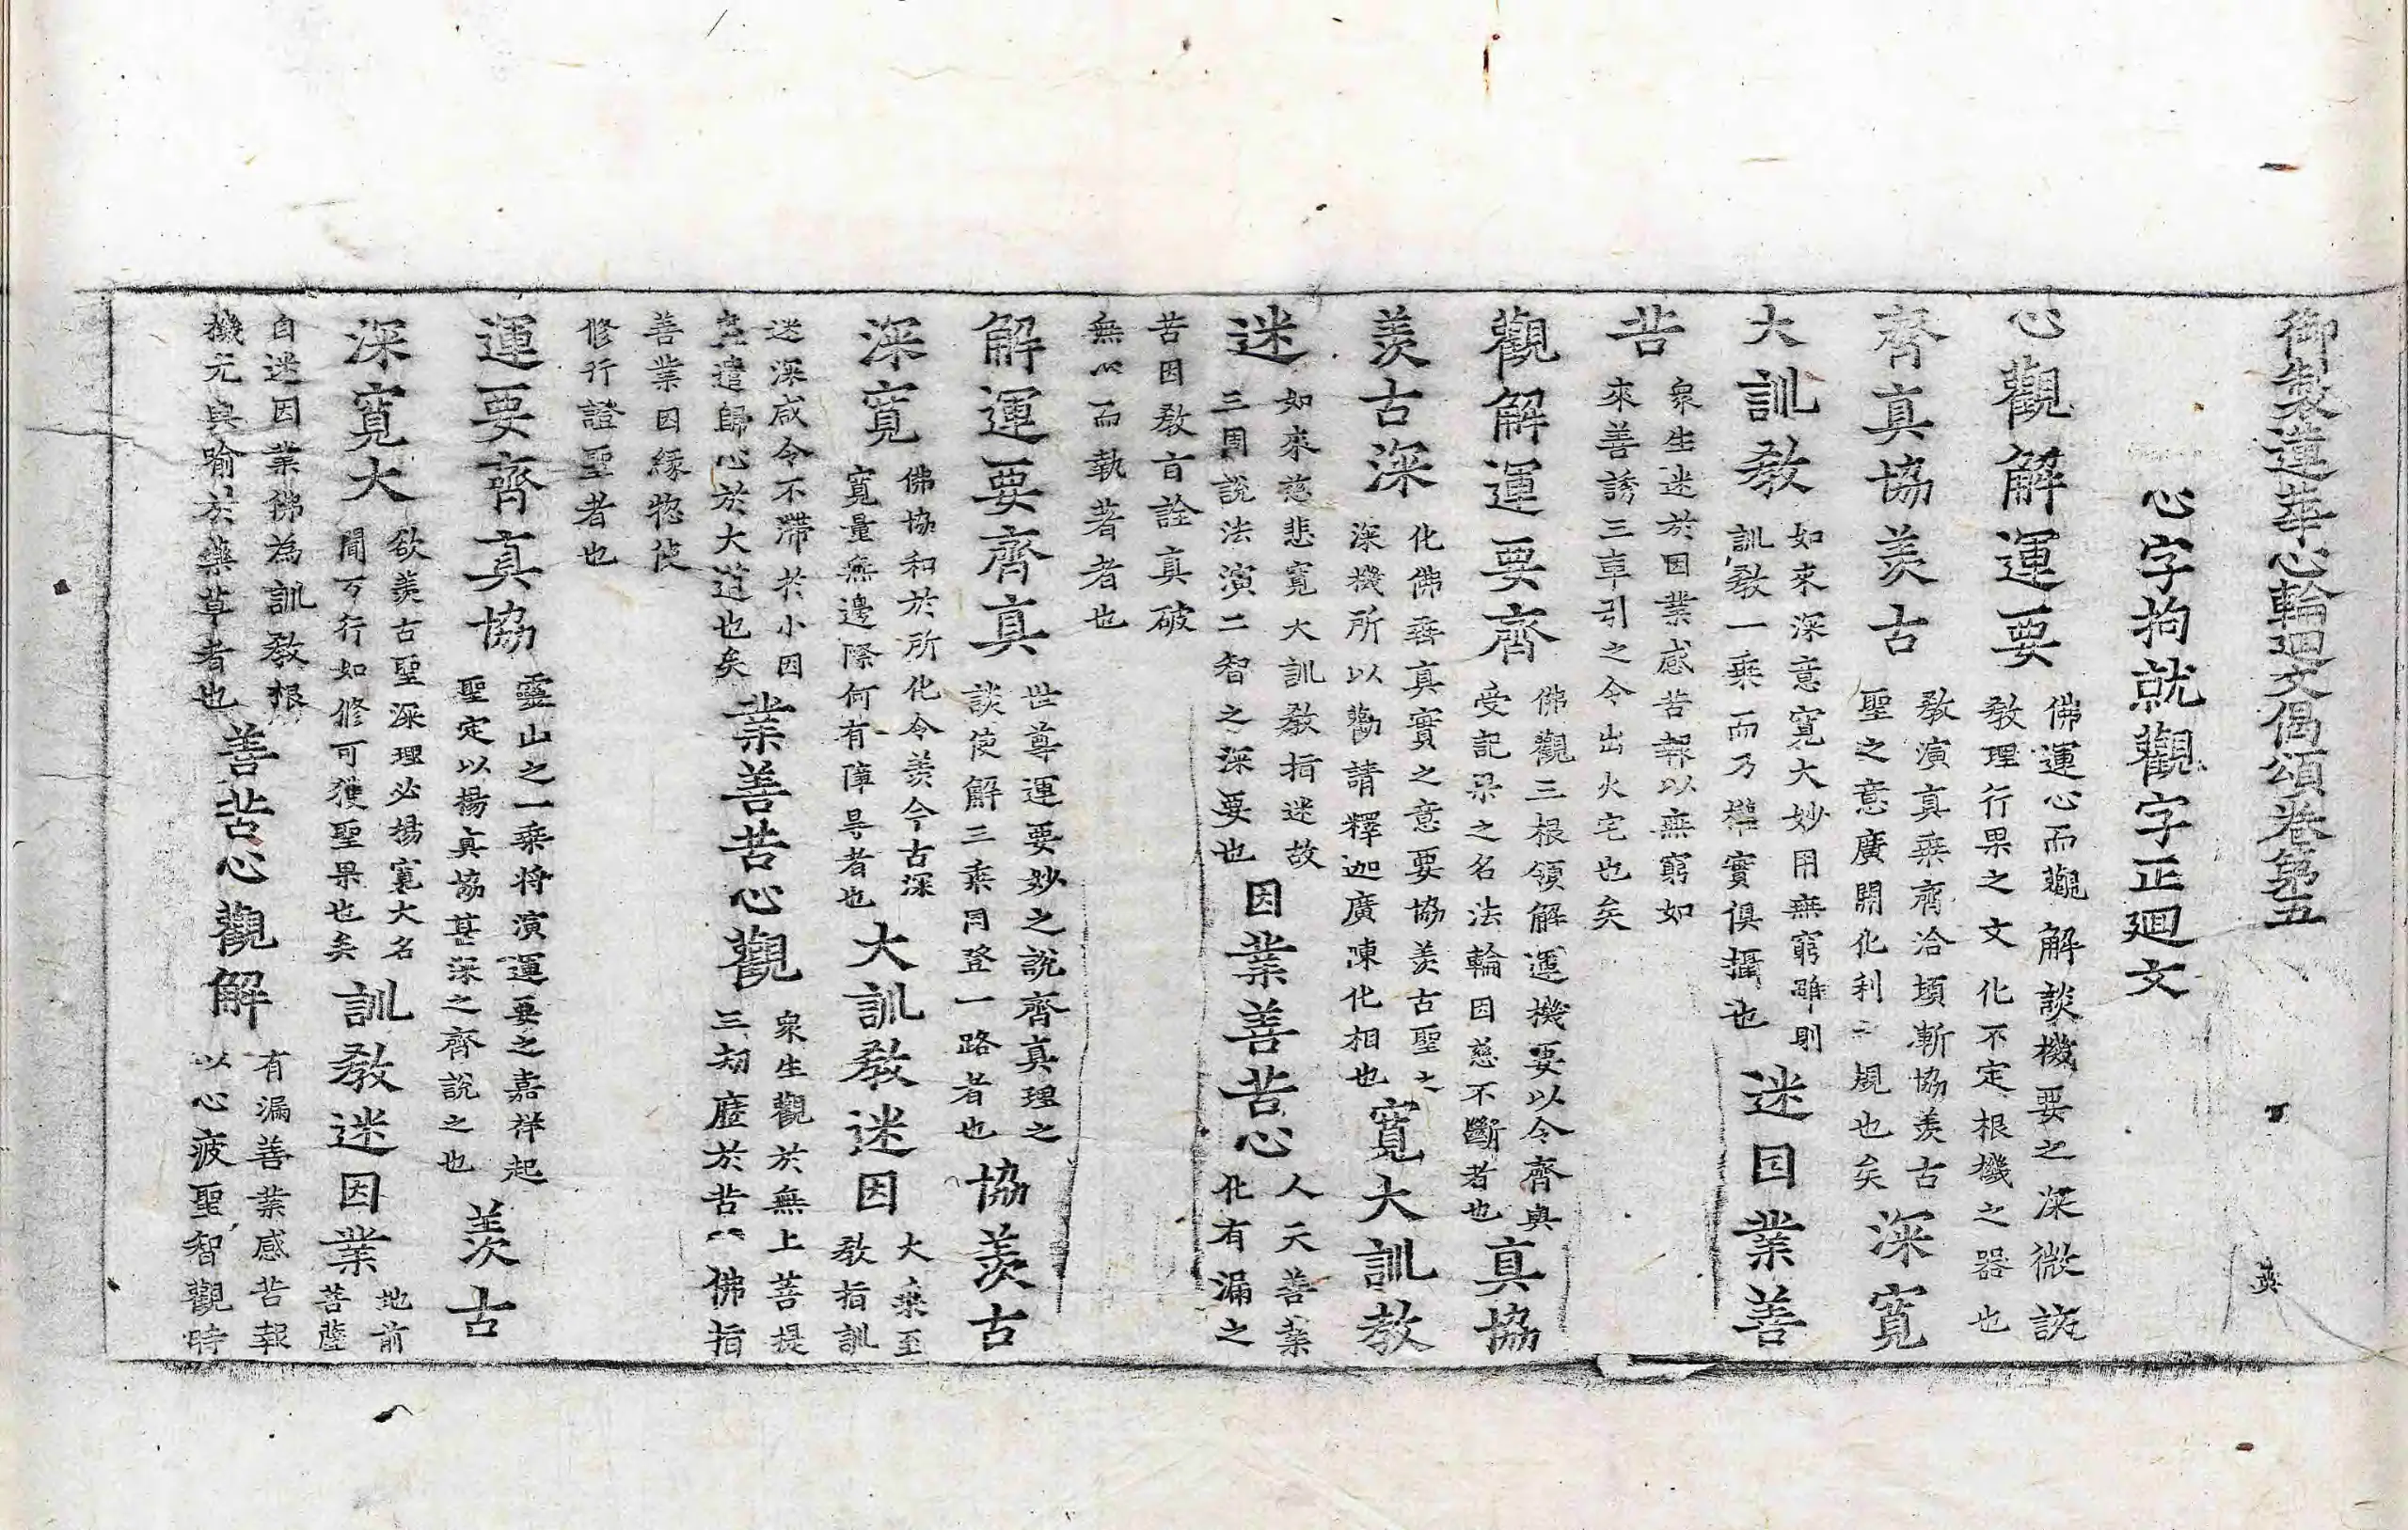 御製蓮華心輪廻文偈頌卷第五
英
心字拘就觀字正廻文
心觀解運要
佛運心而觀解談機要之深微詮
教理行果之文化不定根機之器也
齊真協羨古
教演真乘齊洽頓漸協羨古
聖之意廣開化利二規也矣
深寬
大訓教
如來深意寬大妙用無窮雖則
訓教一乘而乃權實俱攝也
迷因業善
苦
衆生迷於因業感苦報以無窮如
來善誘三車引之令出火宅也矣
觀解運要齊
佛觀三根領解運機要以令齊與
受記莂之名法輪因慈不斷者也
真協
羨古深
化佛垂真實之意要協羨古聖之
深機所以勸請釋迦廣陳化相也
寬大訓教
迷
如來慈悲寬大訓教指迷故
三周說法演二智之深要也
因業善苦心
人天善業
化有漏之
苦因教旨詮真破
無心而執著者也
解運要齊真
世尊運要妙之說齊真理之
談使解三乘同登一路者也
協羨古
深寬
佛協和於所化令羨今古深
寬量無邊際何有障㝵者也
大訓教迷因
大乘至
教指訓
迷深咸令不滯於小因
並遣歸心於大道也矣
業善苦心觀
衆生觀於無上菩提
三劫歷於苦心佛指
善業因緣惣使
修行證聖者也
運要齊真協
靈山之一乘將演運要之嘉祥起
聖定以揚真協甚深之齊說之也
羨古
深寬大
欲羨古聖深理必揚寬大名
聞万行如修可獲聖果也矣
訓教迷因業
地前
菩薩
自迷因業佛為訓教根
機元與喻於藥草者也
善苦心觀解
有漏善業感苦報
以心疲聖智觀時